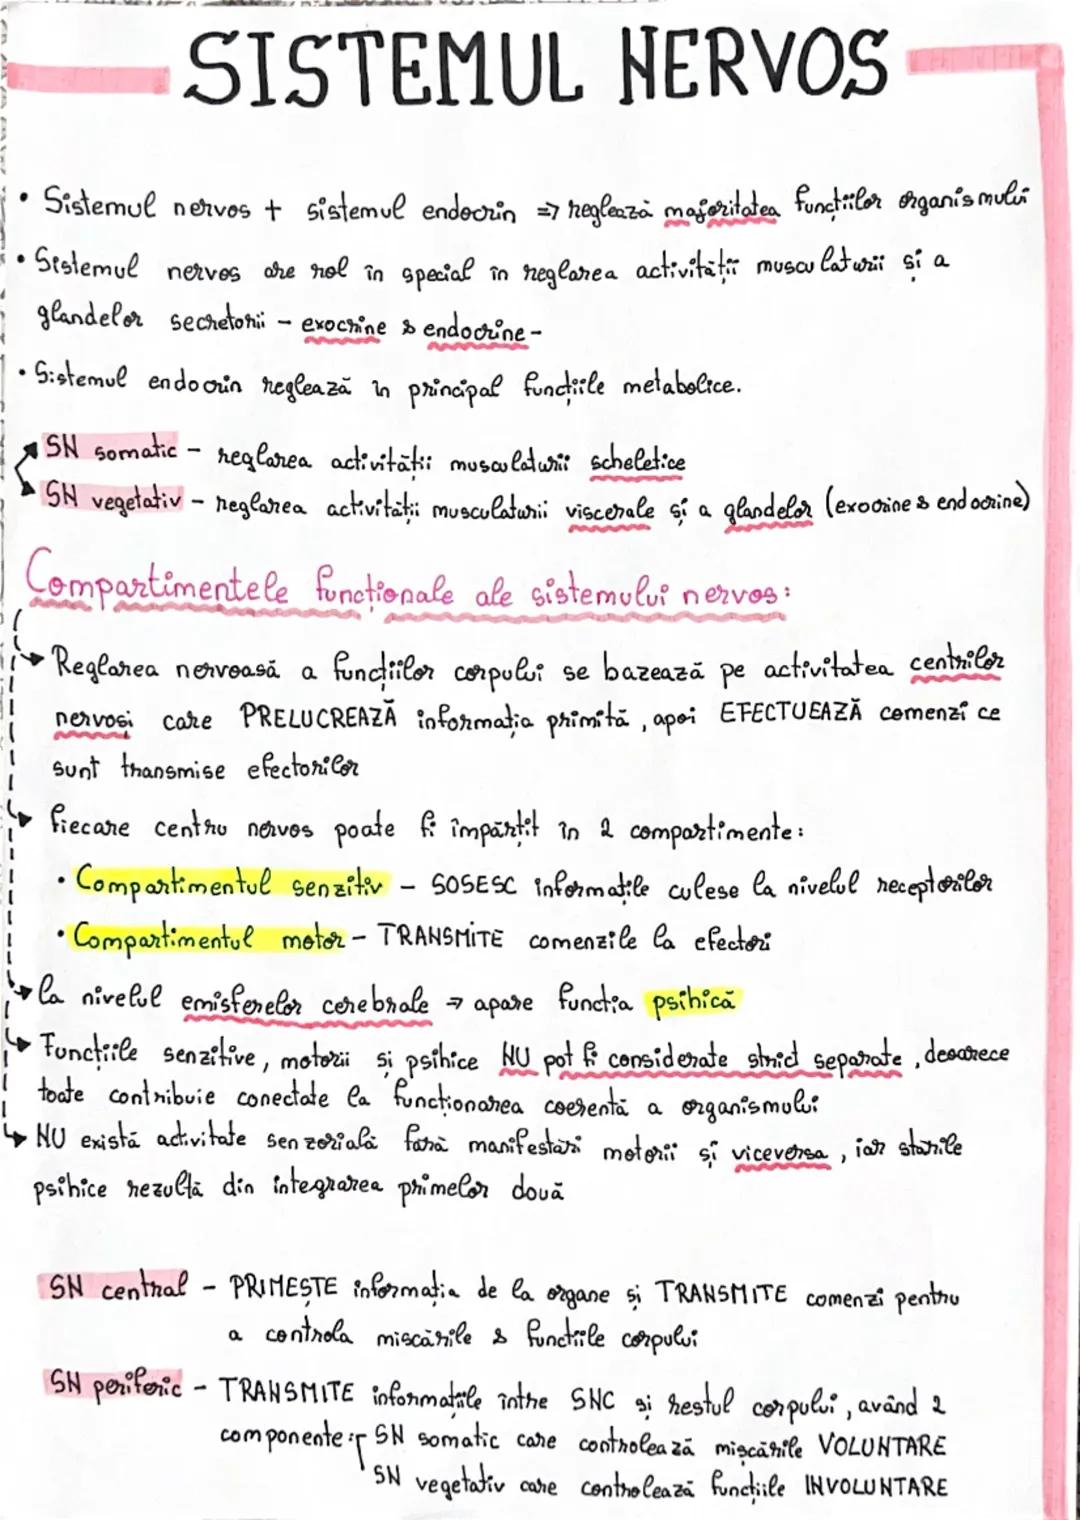 SISTEMUL NERVOS
• Sistemul nervos + sistemul endocrin => reglează majoritatea funcțiilor organismului
• Sistemul nervos are rol în special în reglarea activității musculaturii și a
glandelor secretorii - exocrine & endocrine -
• Sistemul endocrin reglează în principal funcțiile metabolice.
SN somatic - reglarea activității musculaturii scheletice
SN vegetativ - reglarea activității musculaturii viscerale și a glandelor (exocrine & endocrine)
Compartimentele funcționale ale sistemului nervos:
Reglarea nervoasă a funcțiilor corpului se bazează pe activitatea centrilor
nervoși care PRELUCREAZĂ informația primită, apoi EFECTUEAZĂ comenzi ce
sunt transmise efectorilor
fiecare centru nervos poate fi împărțit în 2 compartimente:
• Compartimentul senzitiv - SOSESC informațiile culese la nivelul receptorilor
• Compartimentul motor - TRANSMITE comenzile la efectori
la nivelul emisferelor cerebrale → apare funcția psihică
Funcțiile senzitive, motorii și psihice NU pot fi considerate strict separate, deoarece
toate contribuie conectate la funcționarea coerentă a organismului
NU există activitate senzorială fără manifestări motorii și viceversa, iar stările
psihice rezultă din integrarea primelor două
SN central - PRIMEȘTE informația de la organe și TRANSMITE comenzi pentru
a controla mișcările & funcțiile corpului
SN periferic - TRANSMITE informațiile între SNC și restul corpului, având 2
componente: SN somatic care controlează mișcările VOLUNTARE
SN vegetativ care controlează funcțiile INVOLUNTARE